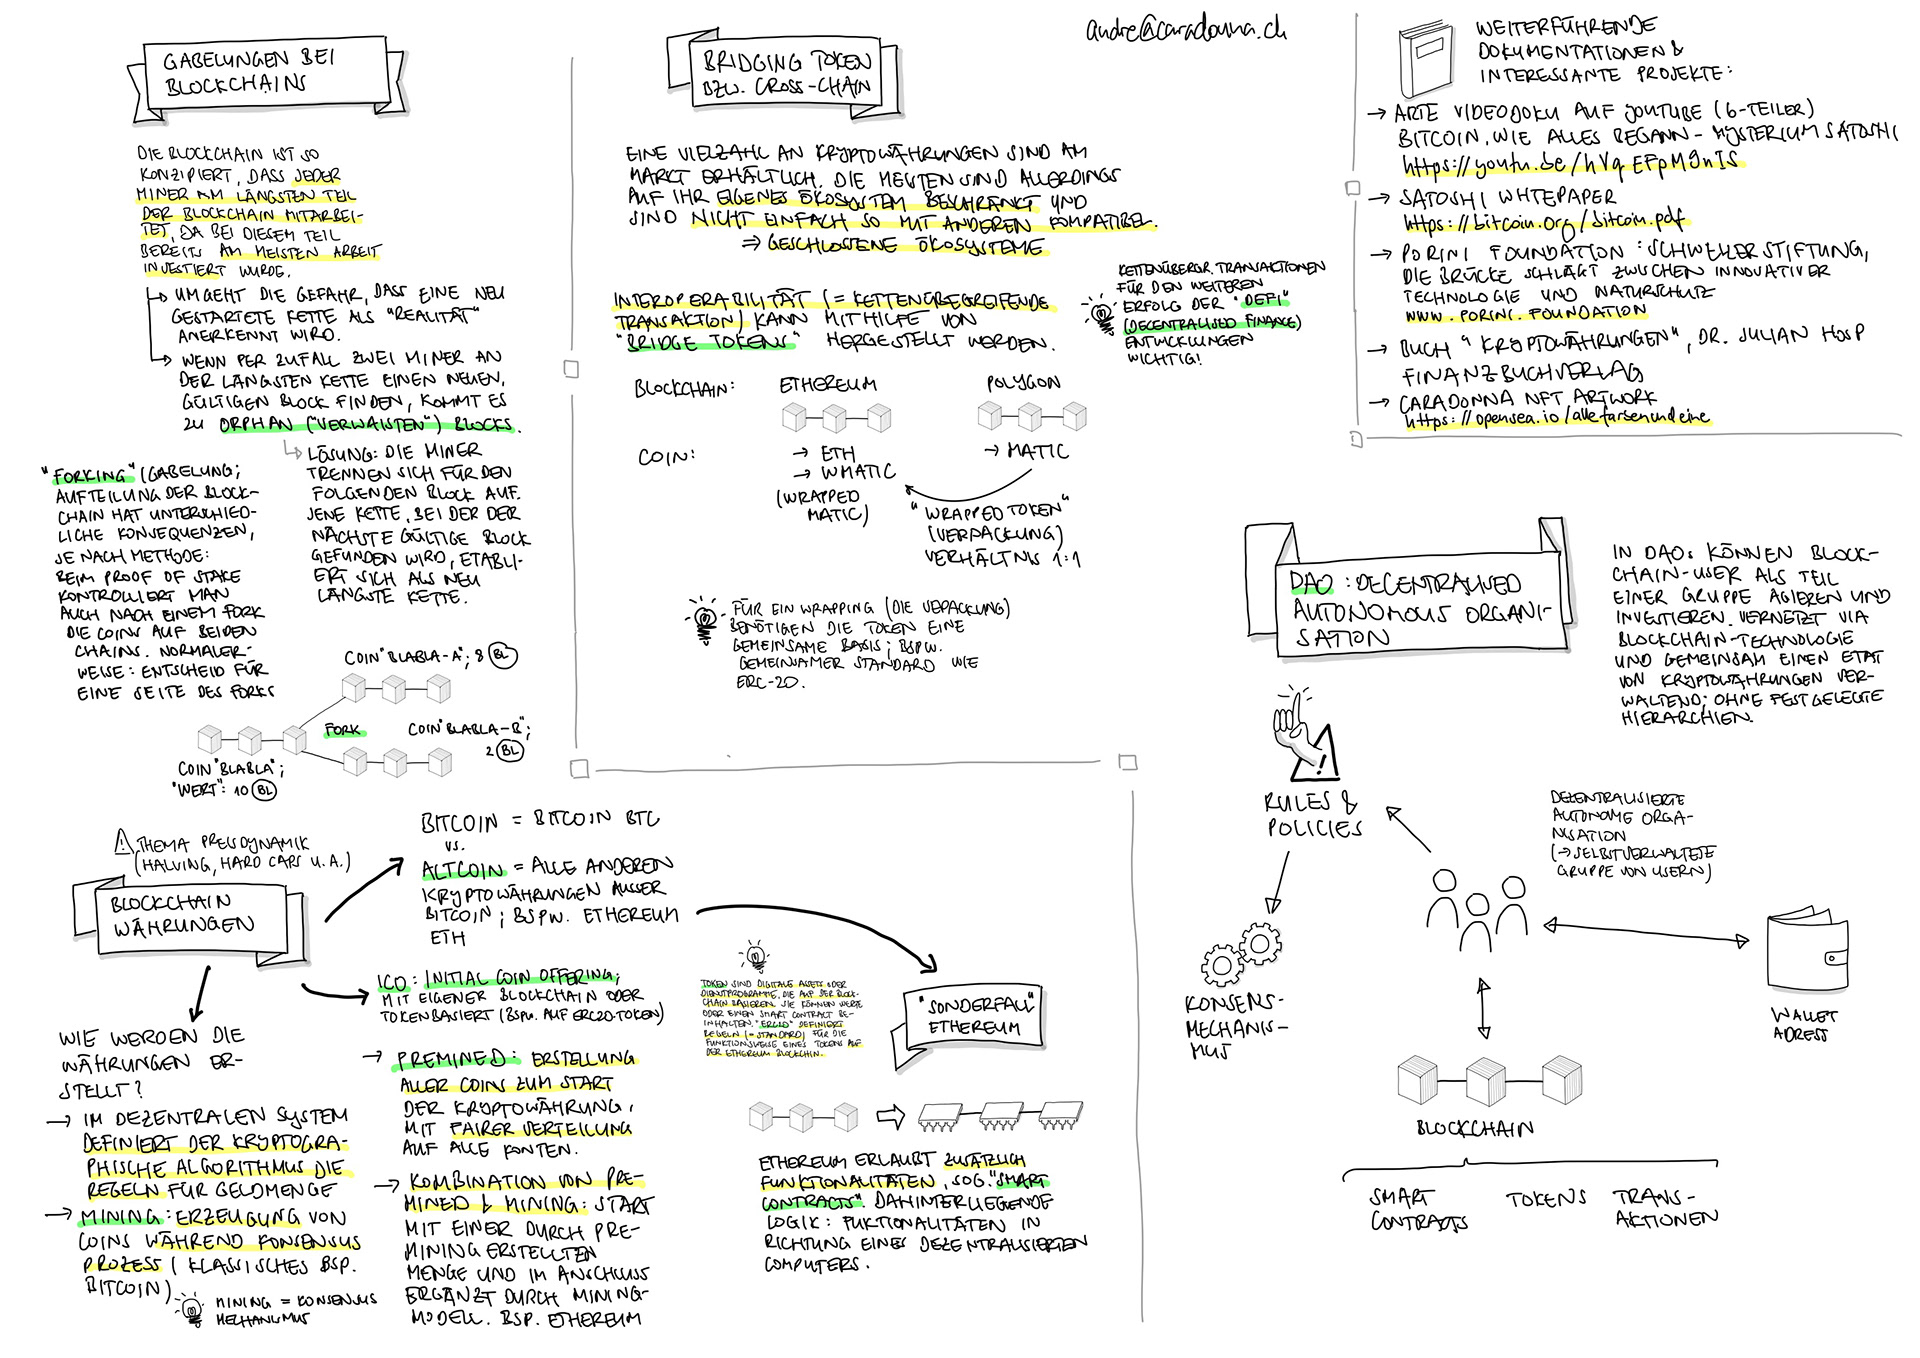 andre@caradonna.ch
GABELUNGEN BEI
BLOCKCHAINS
DIE BLOCKCHAIN IST SO
KONZIPIERT, DASS JEDER
MINER AM LÄNGSTEN TEIL
DER BLOCKCHAIN MITARBEI-
TET, DA BEI DIESEM TEIL
BEREITS AM MEISTEN ARBEIT
INVESTIERT WURDE.
UMGEHT DIE GEFAHR, DASS EINE NEU
GESTARTETE KETTE ALS "REALITÄT"
ANERKENNT WIRD.
WENN PER ZUFALL ZWEI MINER AN
DER LÄNGSTEN KETTE EINEN NEUEN,
GÜLTIGEN BLOCK FINDEN, KOMMT ES
ZU ORPHAN ("VERWAISTEN") BLOCKS.
LÖSUNG: DIE MINER
TRENNEN SICH FÜR DEN
FOLGENDEN BLOCK AUF.
JENE KETTE, BEI DER DER
NÄCHSTE GÜLTIGE BLOCK
GEFUNDEN WIRD, ETABLI-
ERT SICH ALS NEU
LÄNGSTE KETTE.
"FORKING" (GABELUNG;
AUFTEILUNG DER BLOCK-
CHAIN HAT UNTERSCHIED-
LICHE KONSEQUENZEN,
JE NACH METHODE:
BEIM PROOF OF STAKE
KONTROLLIERT MAN
AUCH NACH EINEM FORK
DIE COINS AUF BEIDEN
CHAINS. NORMALER-
WEISE: ENTSCHEID FÜR
EINE SEITE DES FORKS
COIN "BLABLA-A"; 8 BL
FORK
COIN "BLABLA-B";
2 BL
COIN "BLABLA";
"WERT": 10 BL
BRIDGING TOKEN
BZW. CROSS-CHAIN
EINE VIELZAHL AN KRYPTOWÄHRUNGEN SIND AM
MARKT ERHÄLTLICH. DIE MEISTEN SIND ALLERDINGS
AUF IHR EIGENES ÖKOSYSTEM BESCHRÄNKT UND
SIND NICHT EINFACH SO MIT ANDEREN KOMPATIBEL.
⇒ GESCHLOSSENE ÖKOSYSTEME
INTEROPERABILITÄT (= KETTENÜBEGREIFENDE
TRANSAKTION) KANN MITHILFE VON
"BRIDGE TOKENS" HERGESTELLT WERDEN.
KETTENÜBERGR. TRANSAKTIONEN
FÜR DEN WEITEREN
ERFOLG DER "DEFI"
(DECENTRALISED FINANCE)
ENTWICKLUNGEN
WICHTIG!
BLOCKCHAIN: ETHEREUM POLYGON
COIN: → ETH → MATIC
→ WMATIC
(WRAPPED
MATIC)
"WRAPPED TOKEN"
(VERPACKUNG)
VERHÄLTNIS 1:1
FÜR EIN WRAPPING (DIE VEPACKUNG)
BENÖTIGEN DIE TOKEN EINE
GEMEINSAME BASIS; BSPW.
GEMEINSAMER STANDARD WIE
ERC-20.
WEITERFÜHRENDE
DOKUMENTATIONEN &
INTERESSANTE PROJEKTE:
→ ARTE VIDEODOKU AUF YOUTUBE (6-TEILER)
BITCOIN, WIE ALLES BEGANN - MYSTERIUM SATOSHI
https://youtu.be/hVqEFpM9nIS
→ SATOSHI WHTEPAPER
https://bitcoin.org/bitcoin.pdf
→ PORINI FOUNDATION: SCHWEIZER STIFTUNG,
DIE BRÜCKE SCHLÄGT ZWISCHEN INNOVATIVER
TECHNOLOGIE UND NATURSCHUTZ
WWW.PORINI.FOUNDATION
→ BUCH "KRYPTOWÄHRUNGEN", DR. JULIAN HOSP
FINANZBUCHVERLAG
→ CARADONNA NFT ARTWORK
https://opensea.io/allefarbenundeine
DAO: DECENTRALISED
AUTONOMOUS ORGANI-
SATION
IN DAOs KÖNNEN BLOCK-
CHAIN-USER ALS TEIL
EINER GRUPPE AGIEREN UND
INVESTIEREN. VERNETZT VIA
BLOCKCHAIN-TECHNOLOGIE
UND GEMEINSAM EINEN ETAT
VON KRYPTOWÄHRUNGEN VER-
WALTEND; OHNE FESTGELEGTE
HIERARCHIEN.
RULES &
POLICIES
DEZENTRALISIERTE
AUTONOME ORGA-
NISATION
(→ SELBSTVERWALTETE
GRUPPE VON USERN)
KONSENS-
MECHANIS-
MUS
WALLET
ADRESS
BLOCKCHAIN
SMART
CONTRACTS
TOKENS
TRANS-
AKTIONEN
THEMA PREISDYNAMIK
(HALVING, HARD CAPS U.A.)
BLOCKCHAIN
WÄHRUNGEN
BITCOIN = BITCOIN BTC
VS.
ALTCOIN = ALLE ANDEREN
KRYPTOWÄHRUNGEN AUSSER
BITCOIN; BSPW. ETHEREUM
ETH
ICO: INITIAL COIN OFFERING;
MIT EIGENER BLOCKCHAIN ODER
TOKENBASIERT (BSPW. AUF ERC20-TOKEN)
WIE WERDEN DIE
WÄHRUNGEN ER-
STELLT?
→ IM DEZENTRALEN SYSTEM
DEFINIERT DER KRYPTOGRA-
PHISCHE ALGORITHMUS DIE
REGELN FÜR GELDMENGE
→ MINING: ERZEUGUNG VON
COINS WÄHREND KONSENSUS
PROZESS (KLASSISCHES BSP.
BITCOIN)
MINING = KONSENSUS
MECHANISMUS
→ PREMINED: ERSTELLUNG
ALLER COINS ZUM START
DER KRYPTOWÄHRUNG,
MIT FAIRER VERTEILUNG
AUF ALLE KONTEN.
→ KOMBINATION VON PRE-
MINED & MINING: START
MIT EINER DURCH PRE-
MINING ERSTELLTEN
MENGE UND IM ANSCHLUSS
ERGÄNZT DURCH MINING-
MODELL. BSP. ETHEREUM
TOKEN SIND DIGITALE ASSETS ODER
DIENSTPROGRAMME, DIE AUF DER BLOCK-
CHAIN BASIEREN. SIE KÖNNEN WERTE
ODER EINEN SMART CONTRACT BE-
INHALTEN. "ERC20" DEFINIERT
REGELN (= STANDARD) FÜR DIE
FUNKTIONSWEISE EINES TOKENS AUF
DER ETHEREUM BLOCKCHIN.
"SONDERFALL"
ETHEREUM
ETHEREUM ERLAUBT ZUSÄTZLICH
FUNKTIONALITÄTEN, SOG. "SMART
CONTRACTS". DAHINTERLIEGENDE
LOGIK: FUKTIONALITÄTEN IN
RICHTUNG EINES DEZENTRALISIERTEN
COMPUTERS.